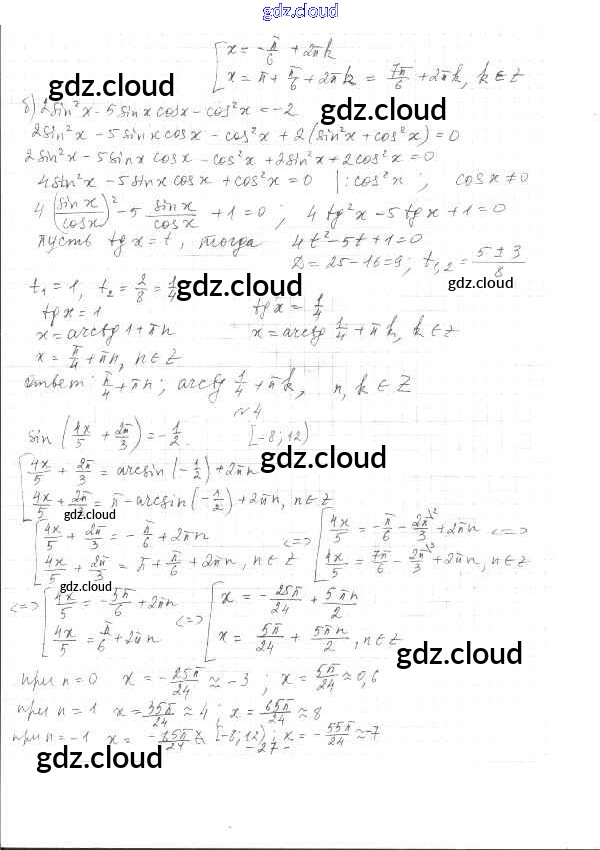 gdz.cloud
x = -π/6 + 2πk
x = π + π/6 + 2πk = 7π/6 + 2πk, k ∈ Z
gdz.cloud
gdz.cloud
б) 2sin²x - 5sinxcosx - cos²x = -2
2sin²x - 5sinxcosx - cos²x + 2(sin²x + cos²x) = 0
2sin²x - 5sinx cosx - cos²x + 2sin²x + 2cos²x = 0
4sin²x - 5sinx cosx + cos²x = 0 |: cos²x ; cosx ≠ 0
4(sinx/cosx)² - 5 sinx/cosx + 1 = 0 ; 4tg²x - 5tgx + 1 = 0
пусть tgx = t, тогда 4t² - 5t + 1 = 0
D = 25 - 16 = 9 ; t₁,₂ = (5 ± 3)/8
t₁ = 1, t₂ = 2/8 = 1/4
gdz.cloud
gdz.cloud
tgx = 1 tgx = 1/4
x = arctg1 + πn x = arctg 1/4 + πk, k ∈ Z
x = π/4 + πn, n ∈ Z
ответ: π/4 + πn ; arctg 1/4 + πk, n, k ∈ Z
gdz.cloud
№4
sin(4x/5 + 2π/3) = -1/2. [-8; 12)
gdz.cloud
4x/5 + 2π/3 = arcsin(-1/2) + 2πn
4x/5 + 2π/3 = π - arcsin(-1/2) + 2πn, n ∈ Z
gdz.cloud
4x/5 + 2π/3 = -π/6 + 2πn
4x/5 + 2π/3 = π + π/6 + 2πn, n ∈ Z
<=> 4x/5 = -π/6 - 2π/3 + 2πn <=>
4x/5 = 7π/6 - 2π/3 + 2πn, n ∈ Z
gdz.cloud
<=> 4x/5 = -5π/6 + 2πn <=> x = -25π/24 + 5πn/2
4x/5 = π/6 + 2πn x = 5π/24 + 5πn/2, n ∈ Z
gdz.cloud
gdz.cloud
при n = 0 x = -25π/24 ≈ -3 ; x = 5π/24 ≈ 0,6
при n = 1 x = 35π/24 ≈ 4 ; x = 65π/24 ≈ 8
при n = -1 x = -85π/24 ∉ [-8; 12) ; x = -55π/24 ≈ -7
- 27 -
gdz.cloud
gdz.cloud